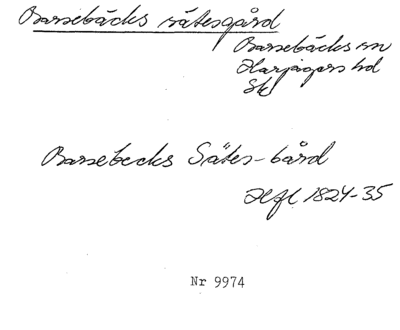 Barsebäcks sätesgård
Barsebäcks sn
Harjagers hd
Sk
Barsebecks Sätes-bård
Hfl 1824-35
Nr 9974